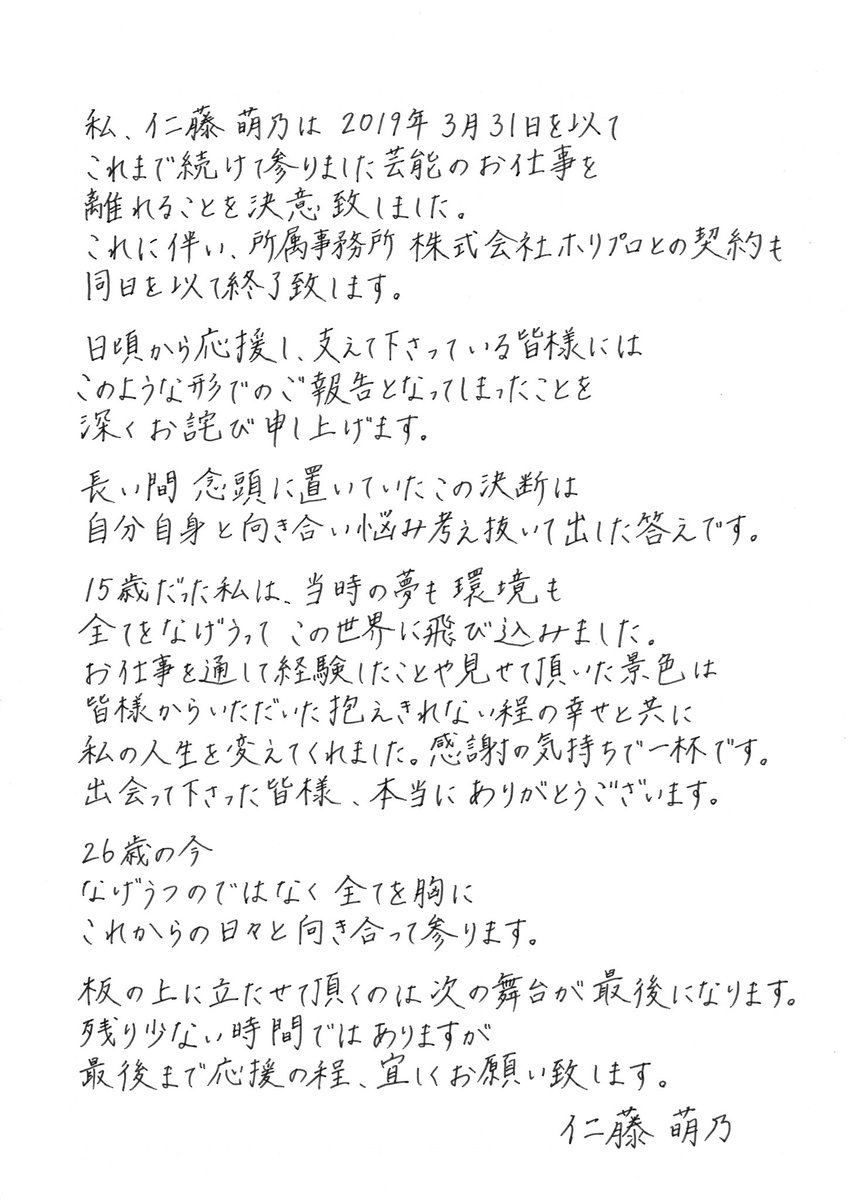 私、仁藤 萌乃は 2019年 3月31日を以て
これまで続けて参りました芸能のお仕事を
離れることを決意致しました。
これに伴い、所属事務所 株式会社ホリプロとの契約も
同日を以て終了致します。
日頃から応援し、支えて下さっている皆様には
このような形でのご報告となってしまったことを
深くお詫び申し上げます。
長い間 念頭に置いていたこの決断は
自分自身と向き合い悩み考え抜いて出した答えです。
15歳だった私は、当時の夢も環境も
全てをなげうって この世界に飛び込みました。
お仕事を通して経験したことや見せて頂いた景色は
皆様からいただいた抱えきれない程の幸せと共に
私の人生を変えてくれました。感謝の気持ちで一杯です。
出会って下さった皆様、本当にありがとうございます。
26歳の今
なげうつのではなく 全てを胸に
これからの日々と向き合って参ります。
板の上に立たせて頂くのは次の舞台が最後になります。
残り少ない時間ではありますが
最後まで応援の程、宜しくお願い致します。
仁藤 萌乃